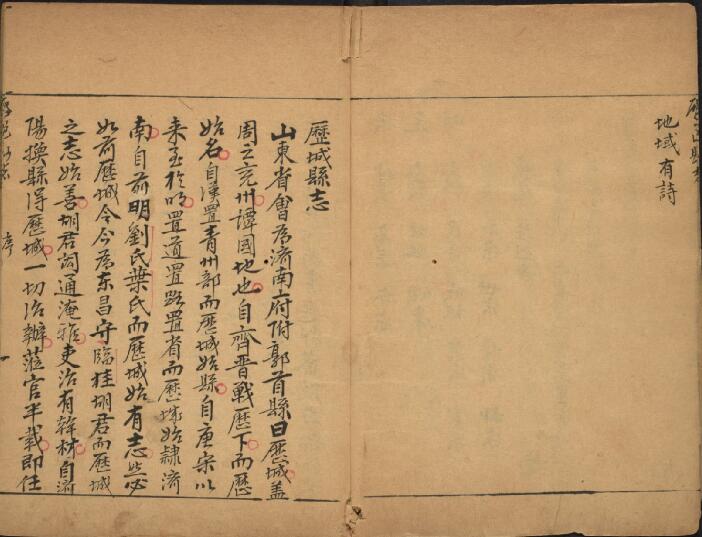 地域有詩
歷城縣志
山東省會為濟南府附郭首縣曰歷城盖
周之兗州譚國地也自齊晋戰歷下而歷
始名自漢置青州部而歷城始縣自唐宋以
来至於明置道置路置省而歷城始隸濟
南自前明劉氏葉氏而歷城始有志然必
如前歷城令今為东昌守臨桂胡君而歷城
之志始善胡君詞通淹雅吏治有幹材自濟
陽換縣得歷城一切治辦蒞官半載即任
序
一